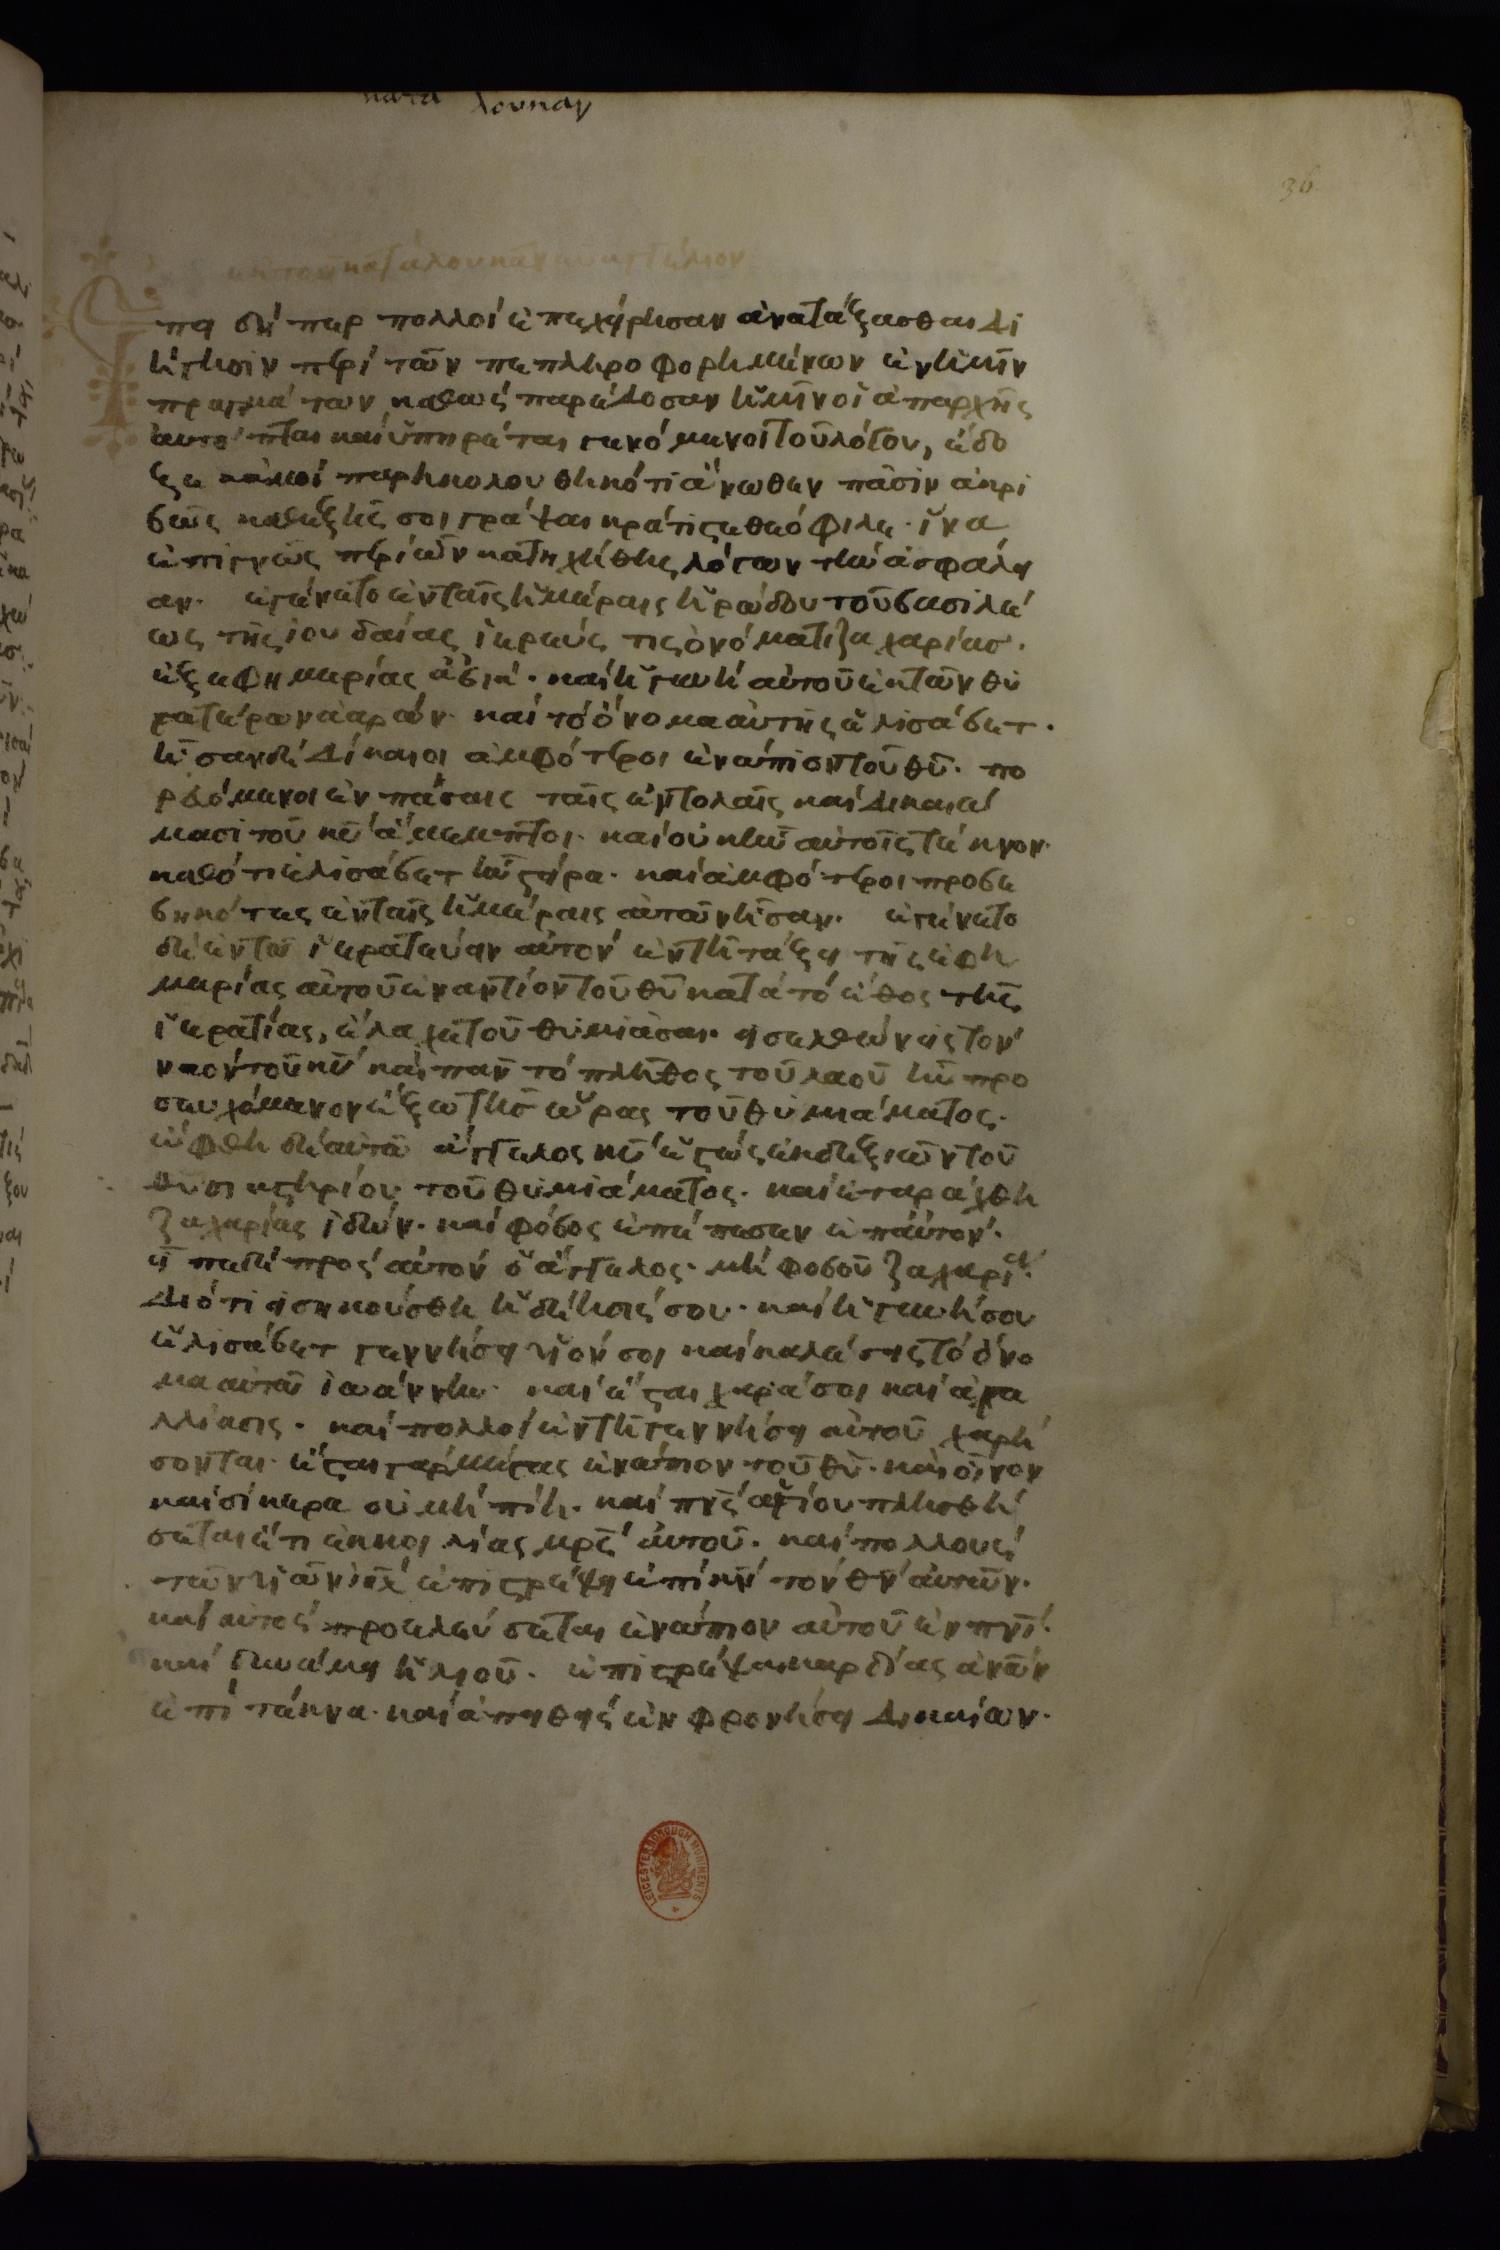 κατα λουκαν
36
ἐκ τοῦ κατὰ λουκᾶν εὐαγγέλιον
Ἐπειδήπερ πολλοὶ ἐπεχείρησαν ἀνατάξασθαι δι
ήγησιν περὶ τῶν πεπληροφορημένων ἐν ἡμῖν
πραγμάτων καθὼς παρέδοσαν ἡμῖν οἱ ἀπαρχῆς
αυτόπται καὶ ὑπηρέται γενόμενοι τοῦ λόγου, ἔδο
ξε κἀμοὶ παρηκολουθηκότι ἄνωθεν πᾶσιν ἀκρι
βῶς καθεξῆς σοι γράψαι κράτιστε θεόφιλε· ἵνα
ἐπιγνῶς περὶ ὧν κατηχήθης λόγων τὴν ἀσφάλει
αν· ἐγένετο ἐν ταῖς ἡμέραις ἡρώδου τοῦ βασιλέ
ως τῆς ἰουδαίας ἱερεύς τις ὀνόματι ζαχαρίας·
ἐξ εφημερίας ἀβιά· καὶ ἡ γυνὴ αὐτοῦ ἐκ τῶν θυ
γατέρων ἀαρών· καὶ τὸ ὄνομα αὐτῆς ἐλισάβετ·
ἦσαν δὲ δίκαιοι ἀμφότεροι ἐνώπιον τοῦ θῦ· πο
ρευόμενοι ἐν πάσαις ταῖς ἐντολαῖς καὶ δικαιώ
μασι τοῦ κῦ ἄμεμπτοι· καὶ οὐκ ἦν αὐτοῖς τέκνον·
καθότι ἐλισάβετ ἦν στείρα· καὶ ἀμφότεροι προβε
βηκότες ἐν ταῖς ἡμέραις αὐτῶν ἦσαν· ἐγένετο
δὲ ἐν τῶ ἱερατεύειν αὐτὸν ἐν τῆ τάξει τῆς ἐφη
μερίας αὐτοῦ ἐναντίον τοῦ θῦ κατὰ τὸ ἔθος τῆς
ἱερατίας, ἔλαχε τοῦ θυμιᾶσαι· εἰσελθὼν εἰς τὸν
ναὸν τοῦ κῦ καὶ παν τὸ πλῆθος τοῦ λαοῦ ἦν προ
σευχόμενον ἔξω τῆ ὥρας τοῦ θυμιάματος·
ὤφθη δὲ αὐτῶ ἄγγελος κῦ ἑστὼς ἐκ δεξιῶν τοῦ
θυσιαστηρίου τοῦ θυμιάματος· καὶ ἐταράχθη
ζαχαρίας ἰδών· καὶ φόβος ἐπέπεσεν ἐπ αὐτόν·
εἶπε δὲ πρὸς αὐτὸν ὁ ἄγγελος· μὴ φοβοῦ ζαχαρία·
διότι εἰσηκούσθη ἡ δέησίς σου· καὶ ἡ γυνή σου
ἐλισάβετ γεννήσει υἱόν σοι καὶ καλέσεις τὸ ὄνο
μα αὐτοῦ ἰωάννην· καὶ ἔσται χαρά σοι καὶ ἀγα
λλίασις· καὶ πολλοὶ ἐν τῆ γεννήσει αὐτοῦ χαρή
σονται· ἔσται γὰρ μέγας ἐνώπιον τοῦ θῦ· καὶ οἶνον
καὶ σίκερα οὐ μὴ πίη· καὶ πνς ἁγίου πλησθή
σεται ἔτι ἐκ κοιλίας μρς αὐτοῦ· καὶ πολλοὺς
τῶν υἱῶν ιηλ ἐπιστρέψει ἐπὶ κν τὸν θν αὐτῶν·
καὶ αὐτὸς προελεύσεται ἐνώπιον αὐτοῦ ἐν πνι·
καὶ δυνάμει ἡλιοῦ· ἐπιστρέψαι καρδίας ανων
ἐπὶ τέκνα· καὶ ἀπειθεῖς ἐν φρονήσει δικαίων·
LEICESTER BOROUGH MUNIMENTS